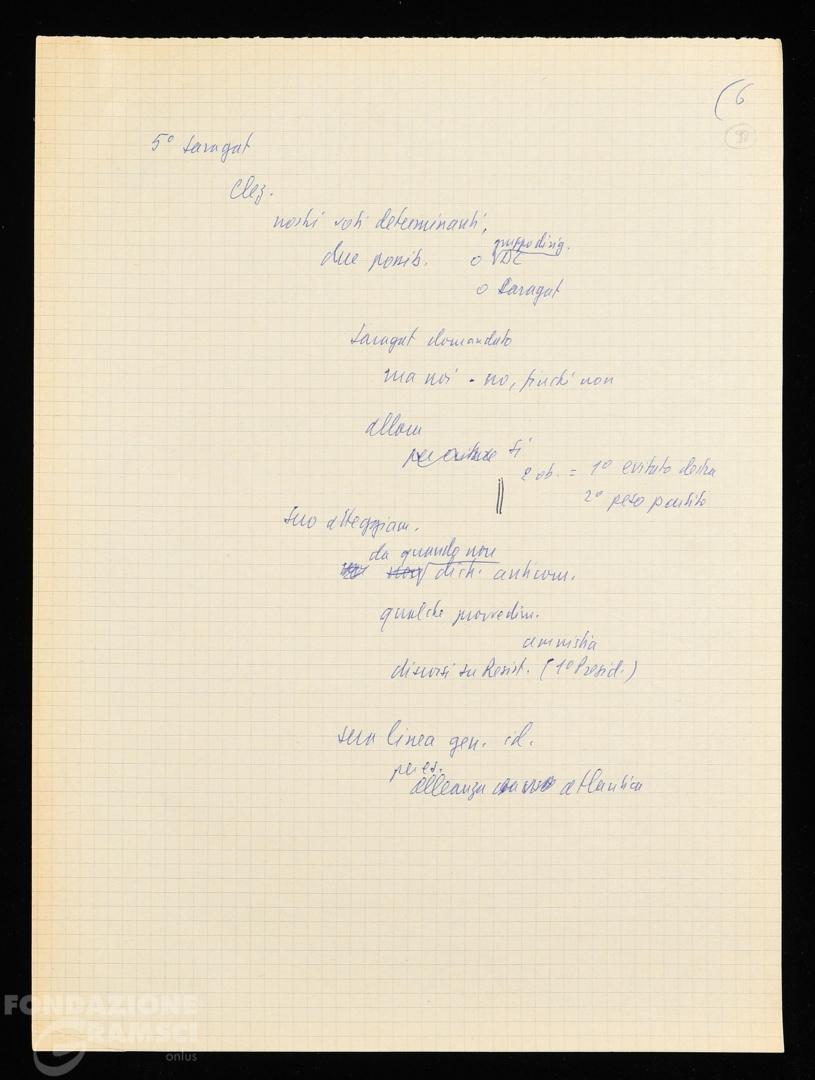 (6
98
5º Saragat
Elez.
nostri voti determinanti,
due possib. o gruppo dirig. DC
o Saragat
Saragat domandato
ma noi - no, finché non
allora
sì
2 ob. = 1º evitato destra
2º peso partito
suo atteggiam.
da quando non
dich. anticom.
qualche provvedim.
amnistia
discorsi su Resist. (1º Presid.)
sua linea gen. id.
per es.
alleanza atlantica
FONDAZIONE
GRAMSCI
onlus